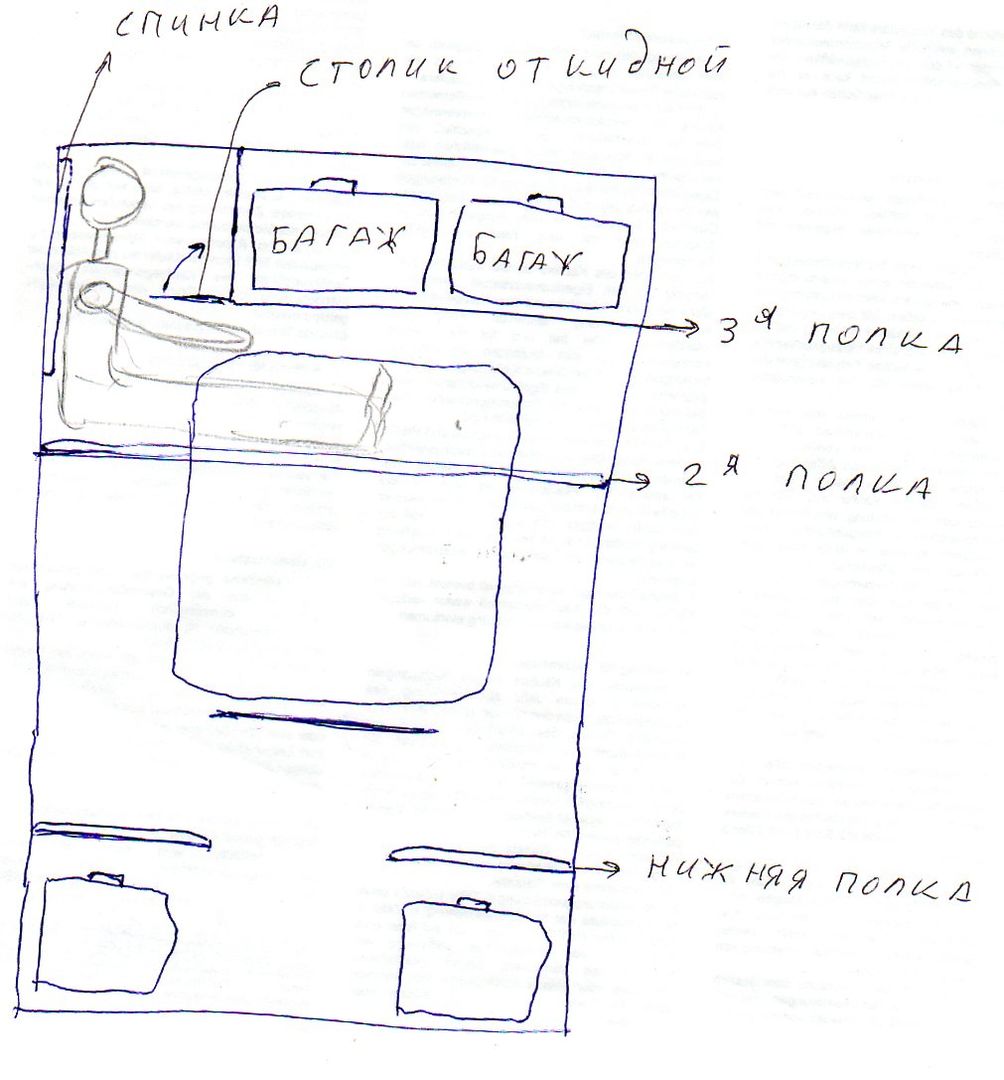 СПИНКА
СТОЛИК ОТКИДНОЙ
БАГАЖ
БАГАЖ
3Я ПОЛКА
2Я ПОЛКА
НИЖНЯЯ ПОЛКА